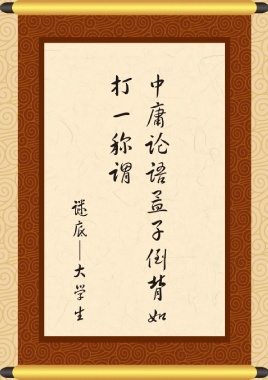 中庸论语孟子倒背如
打一称谓
谜底——大学生